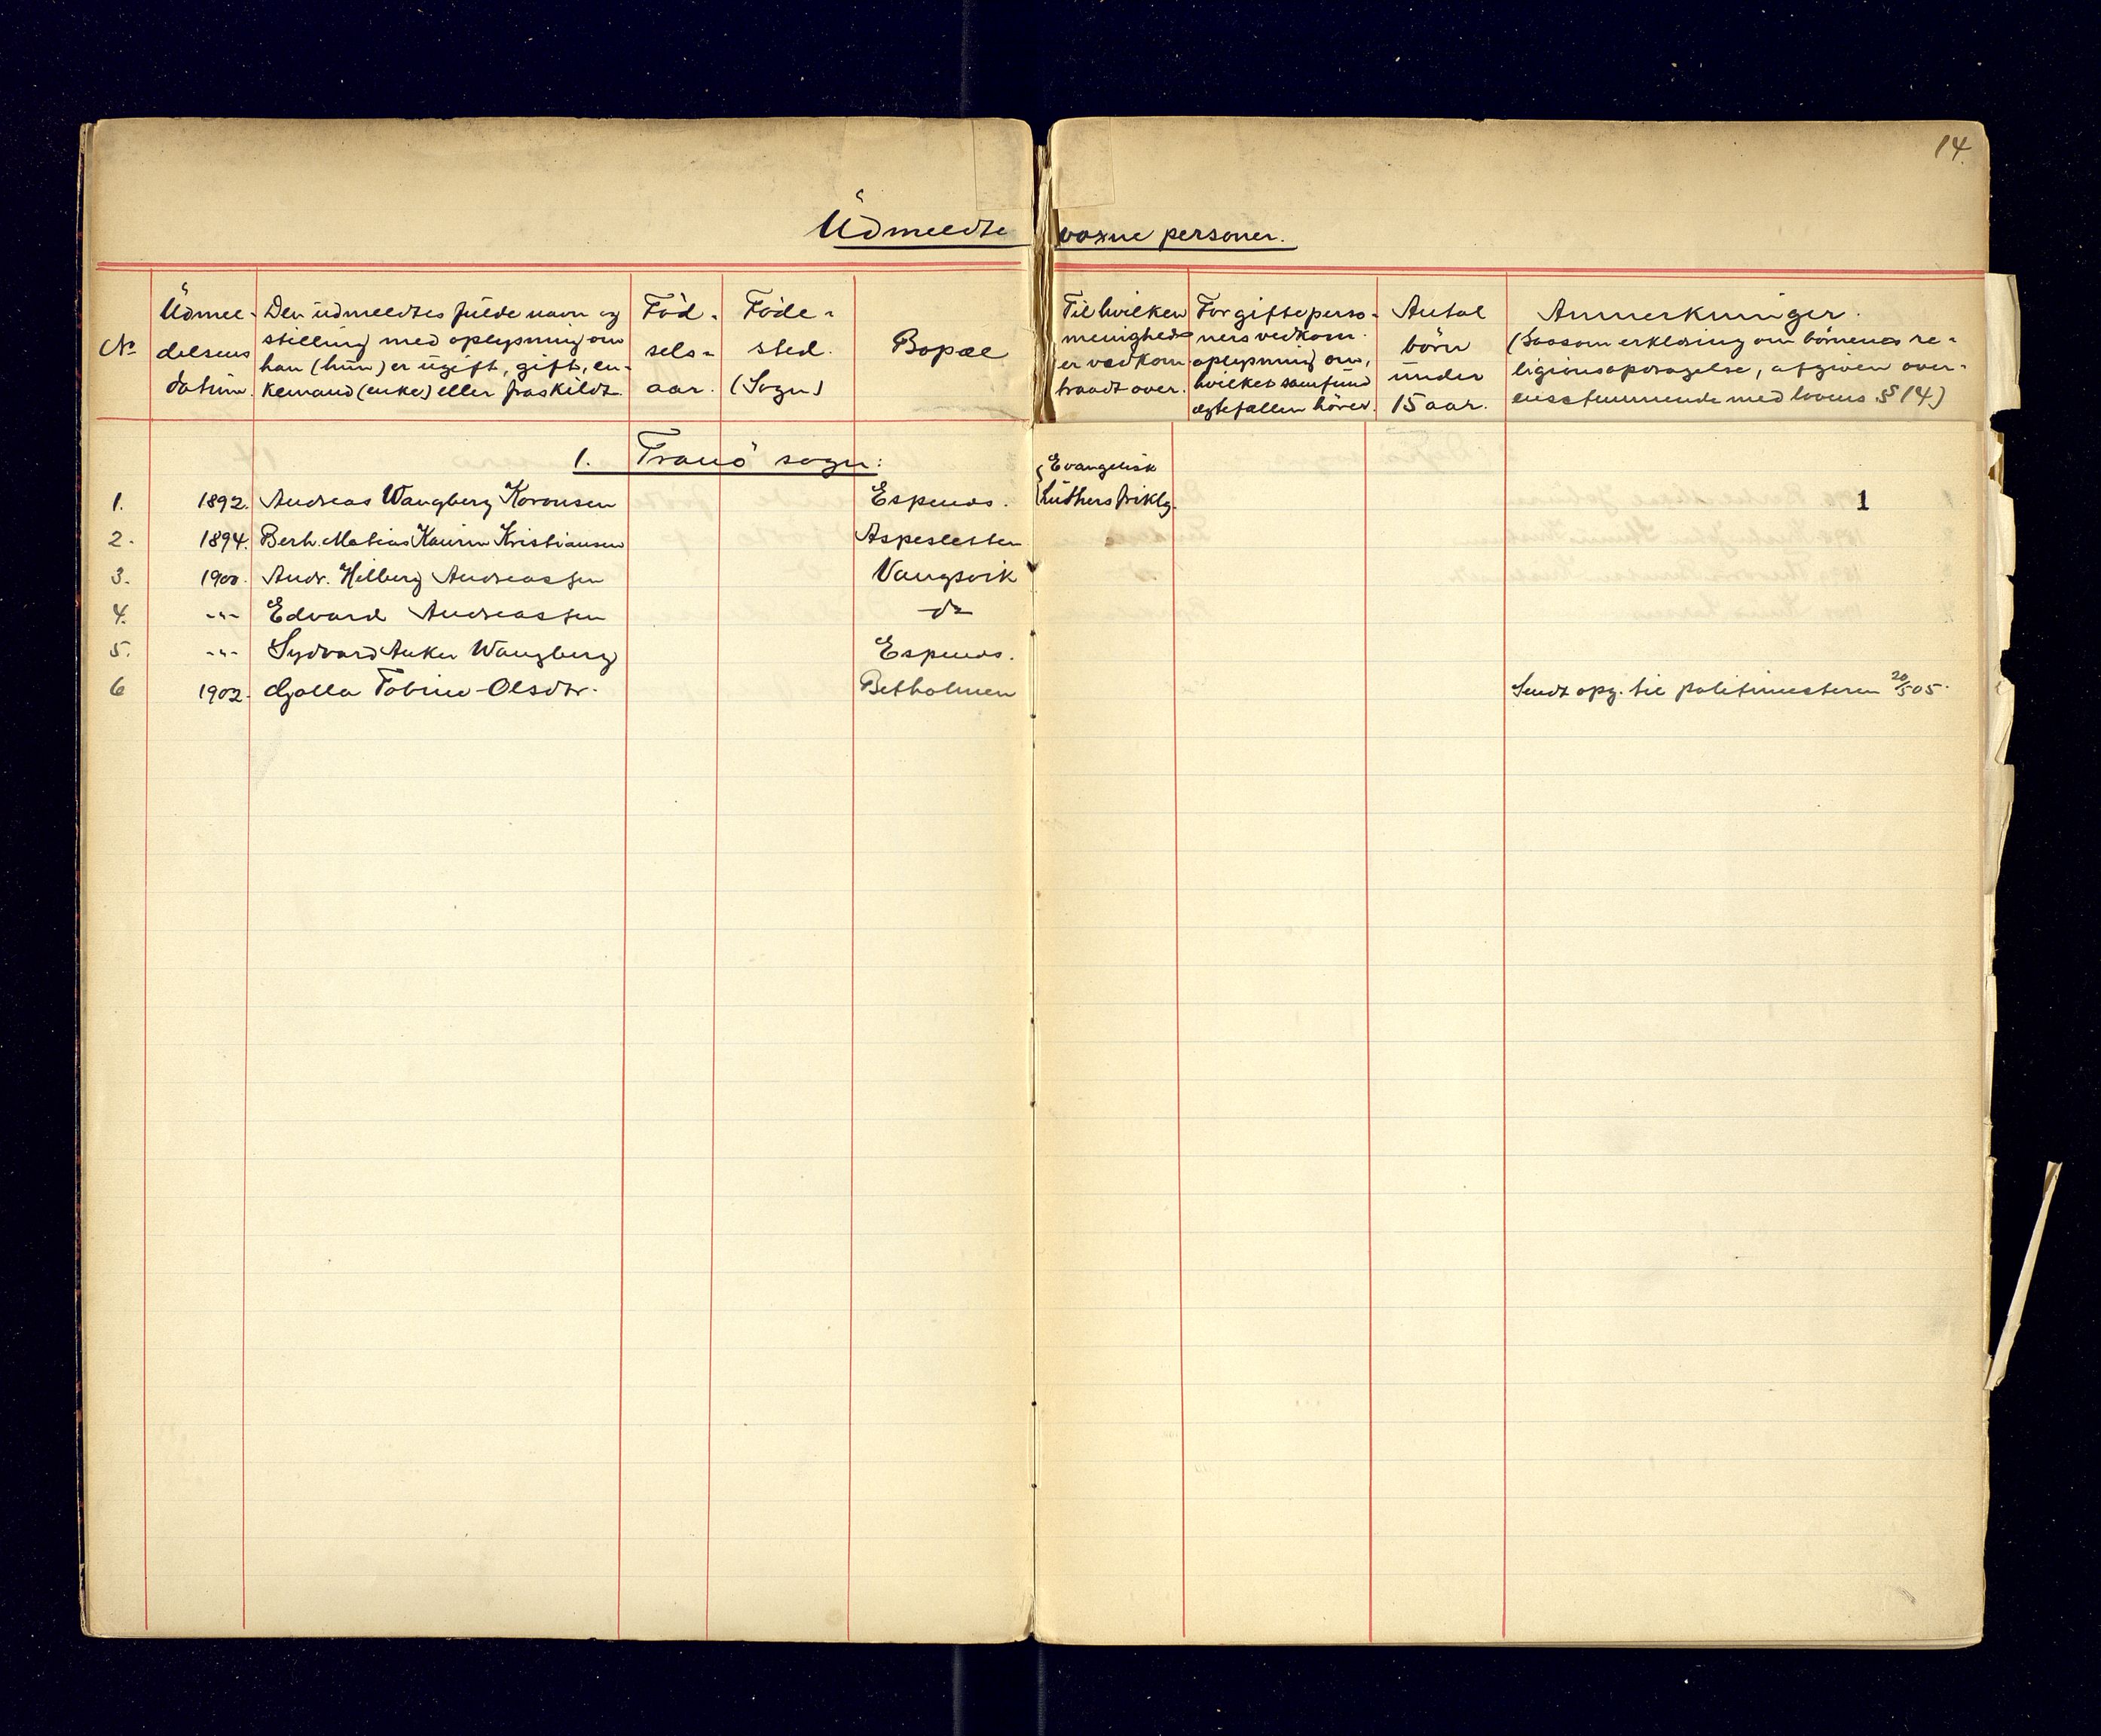 14.
Udmeldte voxne personer.
No
Udmel-
delsens
datum.
Den udmeldtes fulde navn og
stilling med oplysning om
han (hun) er ugift, gift, en-
kemand (enke) eller fraskildt.
Föd-
sels-
aar.
Föde-
sted.
(Sogn)
Bopæl
Til hvilken
menighed
er vedkom
traadt over.
For gifte perso-
ners vedkom.
oplysning om,
hvilket samfund
ægtefællen hörer.
Antal
börn
under
15 aar.
Anmerkninger.
(Saasom erklæring om börnenes re-
ligionsopdragelse, afgiven over-
ensstemmende med lovens § 14)
1. Tranö sogn:
1. 1892. Andreas Wangberg Espenes. Evangelisk
Luthers frikfg. 1
2. 1894. Berh. Matias Kaurin Kristiansen Aspesletten
3. 1900. Andr. Hilberg Andreassen Vangsvik
4. -"- Edvard Andreassen do
5. -"- Sydvard Anker Wangberg Espenes.
6 1902. Tobine Olsdtr. Betholmen Sendt opg. til politimesteren 20/5 05.